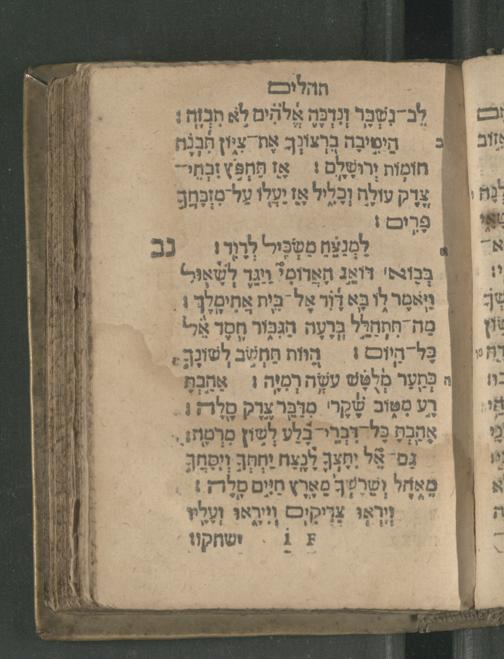 תהלים
לֵב־נִשְׁבָּר וְנִדְכֶּה אֱלֹהִים לֹא תִבְזֶה׃
הֵיטִיבָה בִרְצוֹנְךָ אֶת־צִיּוֹן תִּבְנֶה
חוֹמוֹת יְרוּשָׁלָםִ׃ אָז תַּחְפֹּץ זִבְחֵי־
צֶדֶק עוֹלָה וְכָלִיל אָז יַעֲלוּ עַל־מִזְבַּחֲךָ
פָרִים׃
לַמְנַצֵּחַ מַשְׂכִּיל לְדָוִד׃ נב
בְּבוֹא דּוֹאֵג הָאֲדוֹמִי וַיַּגֵּד לְשָׁאוּל
וַיֹּאמֶר לוֹ בָּא דָוִד אֶל־בֵּית אֲחִימֶלֶךְ׃
מַה־תִּתְהַלֵּל בְּרָעָה הַגִּבּוֹר חֶסֶד אֵל
כָּל־הַיּוֹם׃ הַוּוֹת תַּחְשֹׁב לְשׁוֹנֶךָ
כְּתַעַר מְלֻטָּשׁ עֹשֵׂה רְמִיָּה׃ אָהַבְתָּ
רָּע מִטּוֹב שֶׁקֶר מִדַּבֵּר צֶדֶק סֶלָה׃
אָהַבְתָּ כָל־דִּבְרֵי־בָלַע לְשׁוֹן מִרְמָה׃
גַּם־אֵל יִתָּצְךָ לָנֶצַח יַחְתְּךָ וְיִסָּחֲךָ
מֵאֹהֶל וְשֵׁרֶשְׁךָ מֵאֶרֶץ חַיִּים סֶלָה׃
וְיִרְאוּ צַדִּיקִים וְיִירָאוּ וְעָלָיו
ישחקו׃ i F